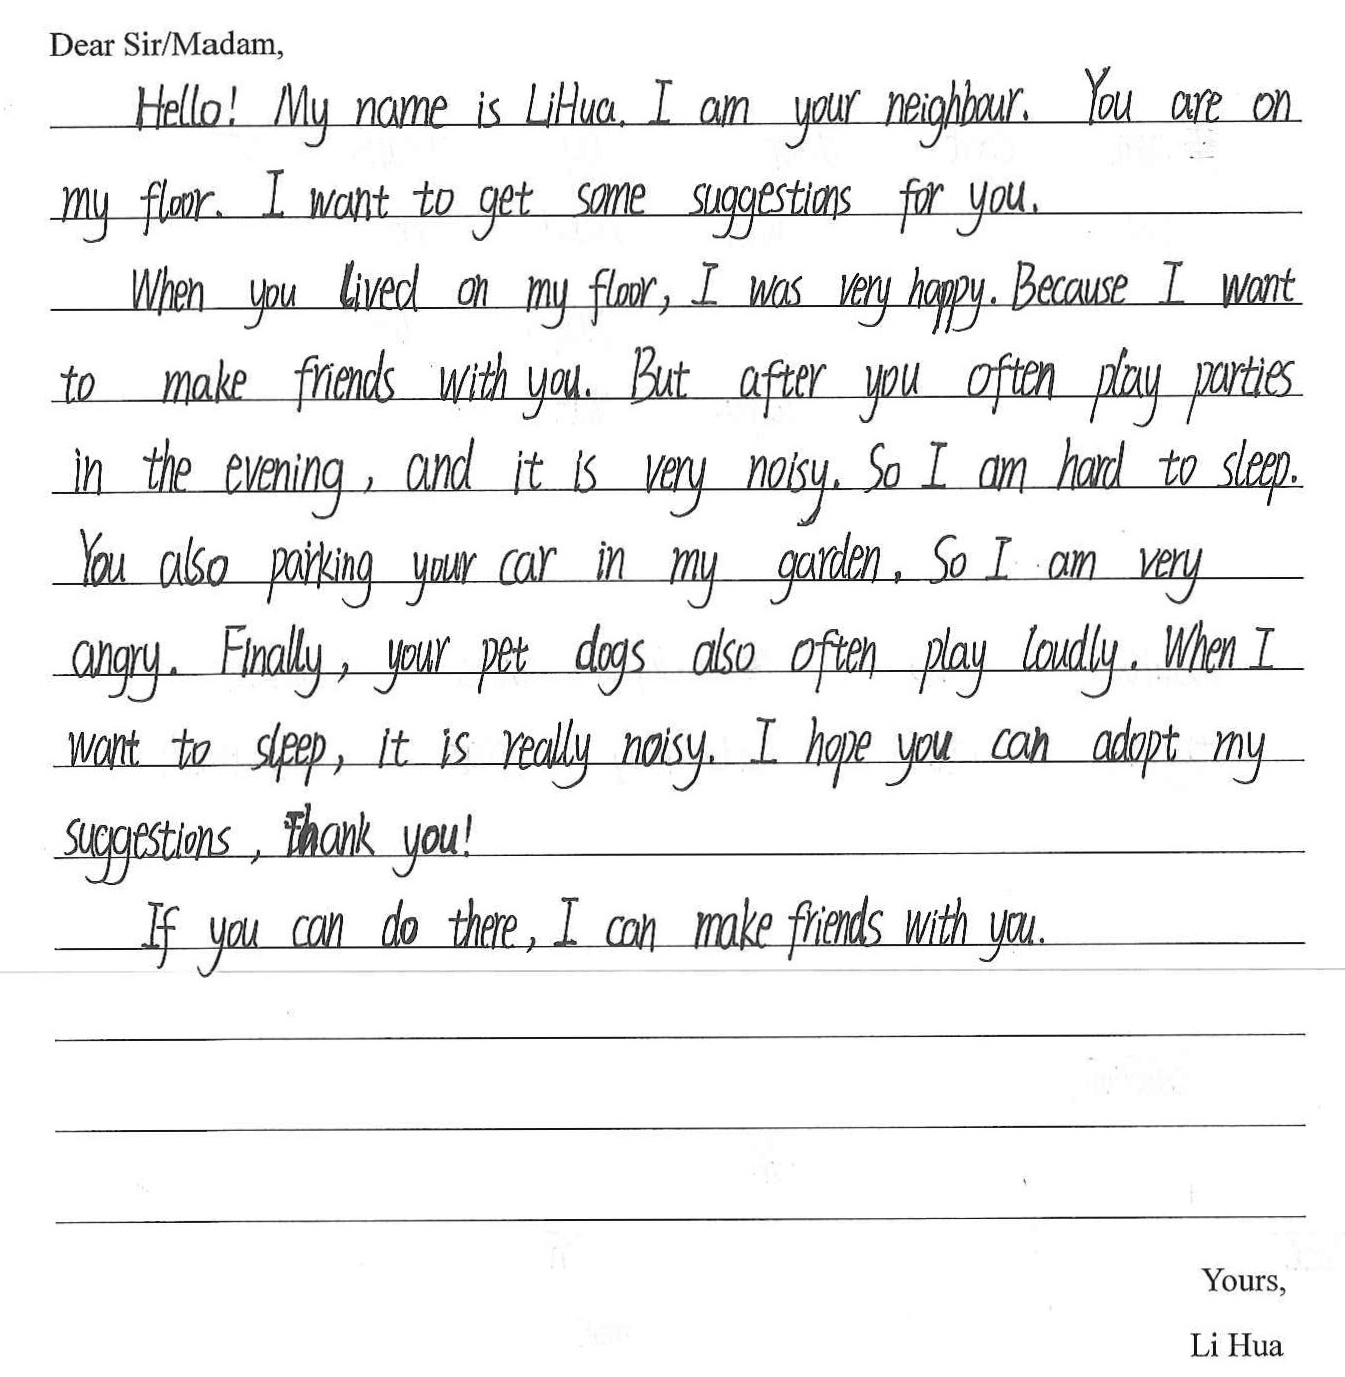 Dear Sir/Madam,
Hello! My name is LiHua. I am your neighbour. You are on
my floor. I want to get some suggestions for you.
When you lived on my floor, I was very happy. Because I want
to make friends with you. But after you often play parties
in the evening, and it is very noisy. So I am hard to sleep.
You also parking your car in my garden. So I am very
angry. Finally, your pet dogs also often play loudly. When I
want to sleep, it is really noisy. I hope you can adopt my
suggestions, Thank you!
If you can do there, I can make friends with you.
Yours,
Li Hua